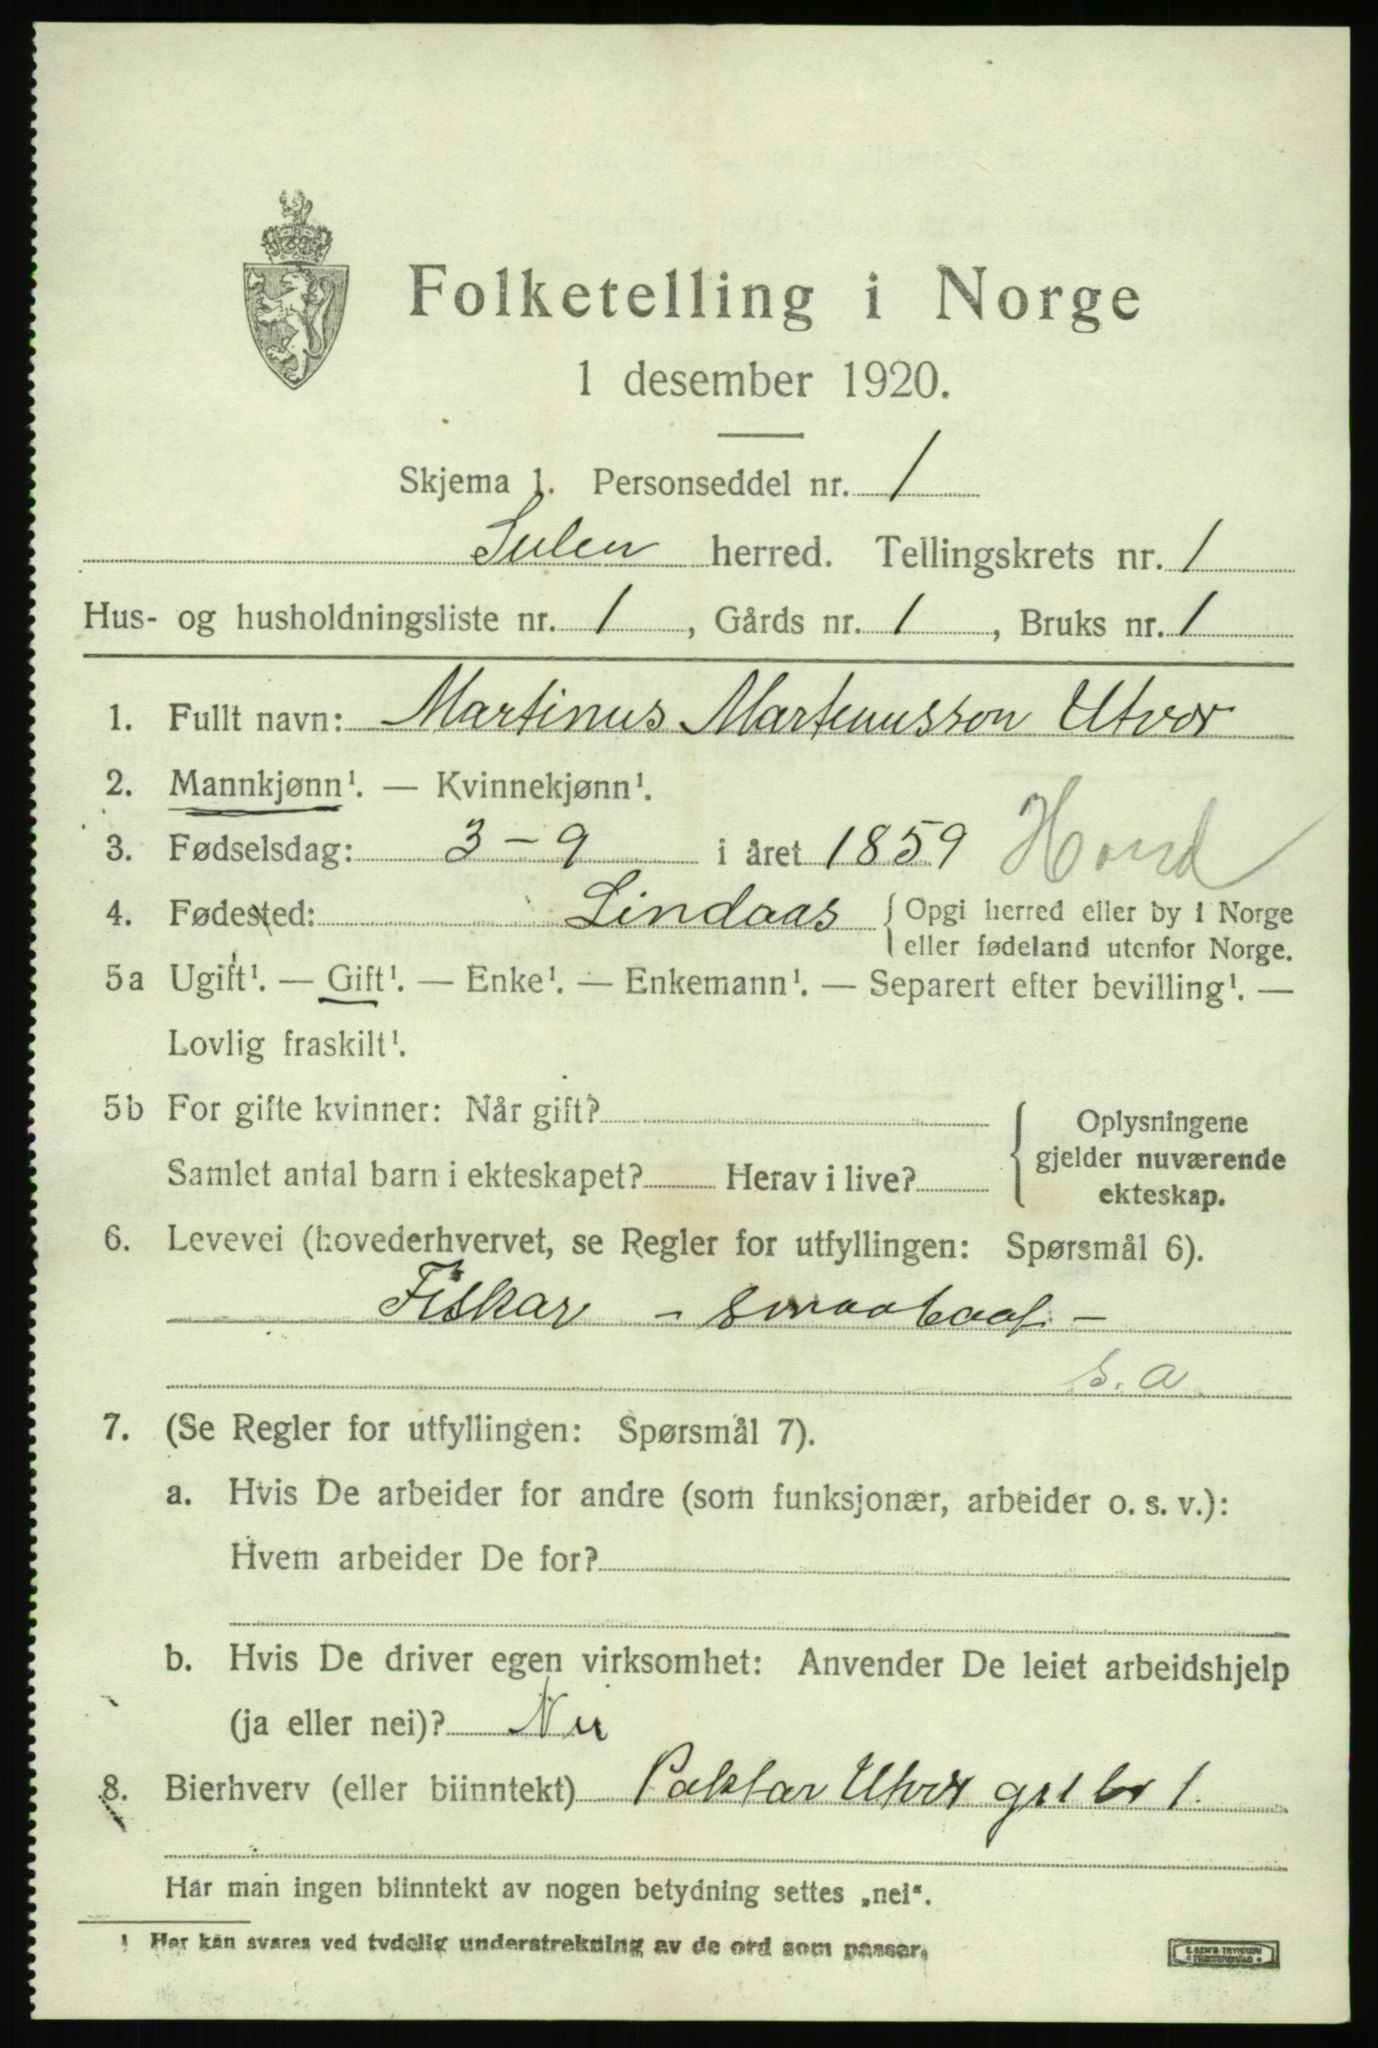 Folketelling i Norge
1 desember 1920.
Skjema 1. Personseddel nr. 1
Sulen herred. Tellingskrets nr. 1
Hus- og husholdningsliste nr. 1, Gårds nr. 1, Bruks nr. 1
1. Fullt navn: Martinus Martinusson Utvær
2. Mannkjønn¹. — Kvinnekjønn¹.
3. Fødselsdag: 3 - 9 i året 1859 Hord
4. Fødested: Lindaas { Opgi herred eller by i Norge
eller fødeland utenfor Norge.
5a Ugift¹. — Gift¹. — Enke¹. — Enkemann¹. — Separert efter bevilling¹. —
Lovlig fraskilt¹.
5b For gifte kvinner: Når gift?
Samlet antal barn i ekteskapet? Herav i live?
{ Oplysningene
gjelder nuværende
ekteskap.
6. Levevei (hovederhvervet, se Regler for utfyllingen: Spørsmål 6).
Fiskar - smaabaat -
s. a
7. (Se Regler for utfyllingen: Spørsmål 7).
a. Hvis De arbeider for andre (som funksjonær, arbeider o. s. v.):
Hvem arbeider De for?
b. Hvis De driver egen virksomhet: Anvender De leiet arbeidshjelp
(ja eller nei)? Nei
8. Bierhverv (eller biinntekt) Paktar Utvær gr 1 br 1.
Har man ingen biinntekt av nogen betydning settes „nei“.
¹ Her kan svares ved tydelig understrekning av de ord som passer.